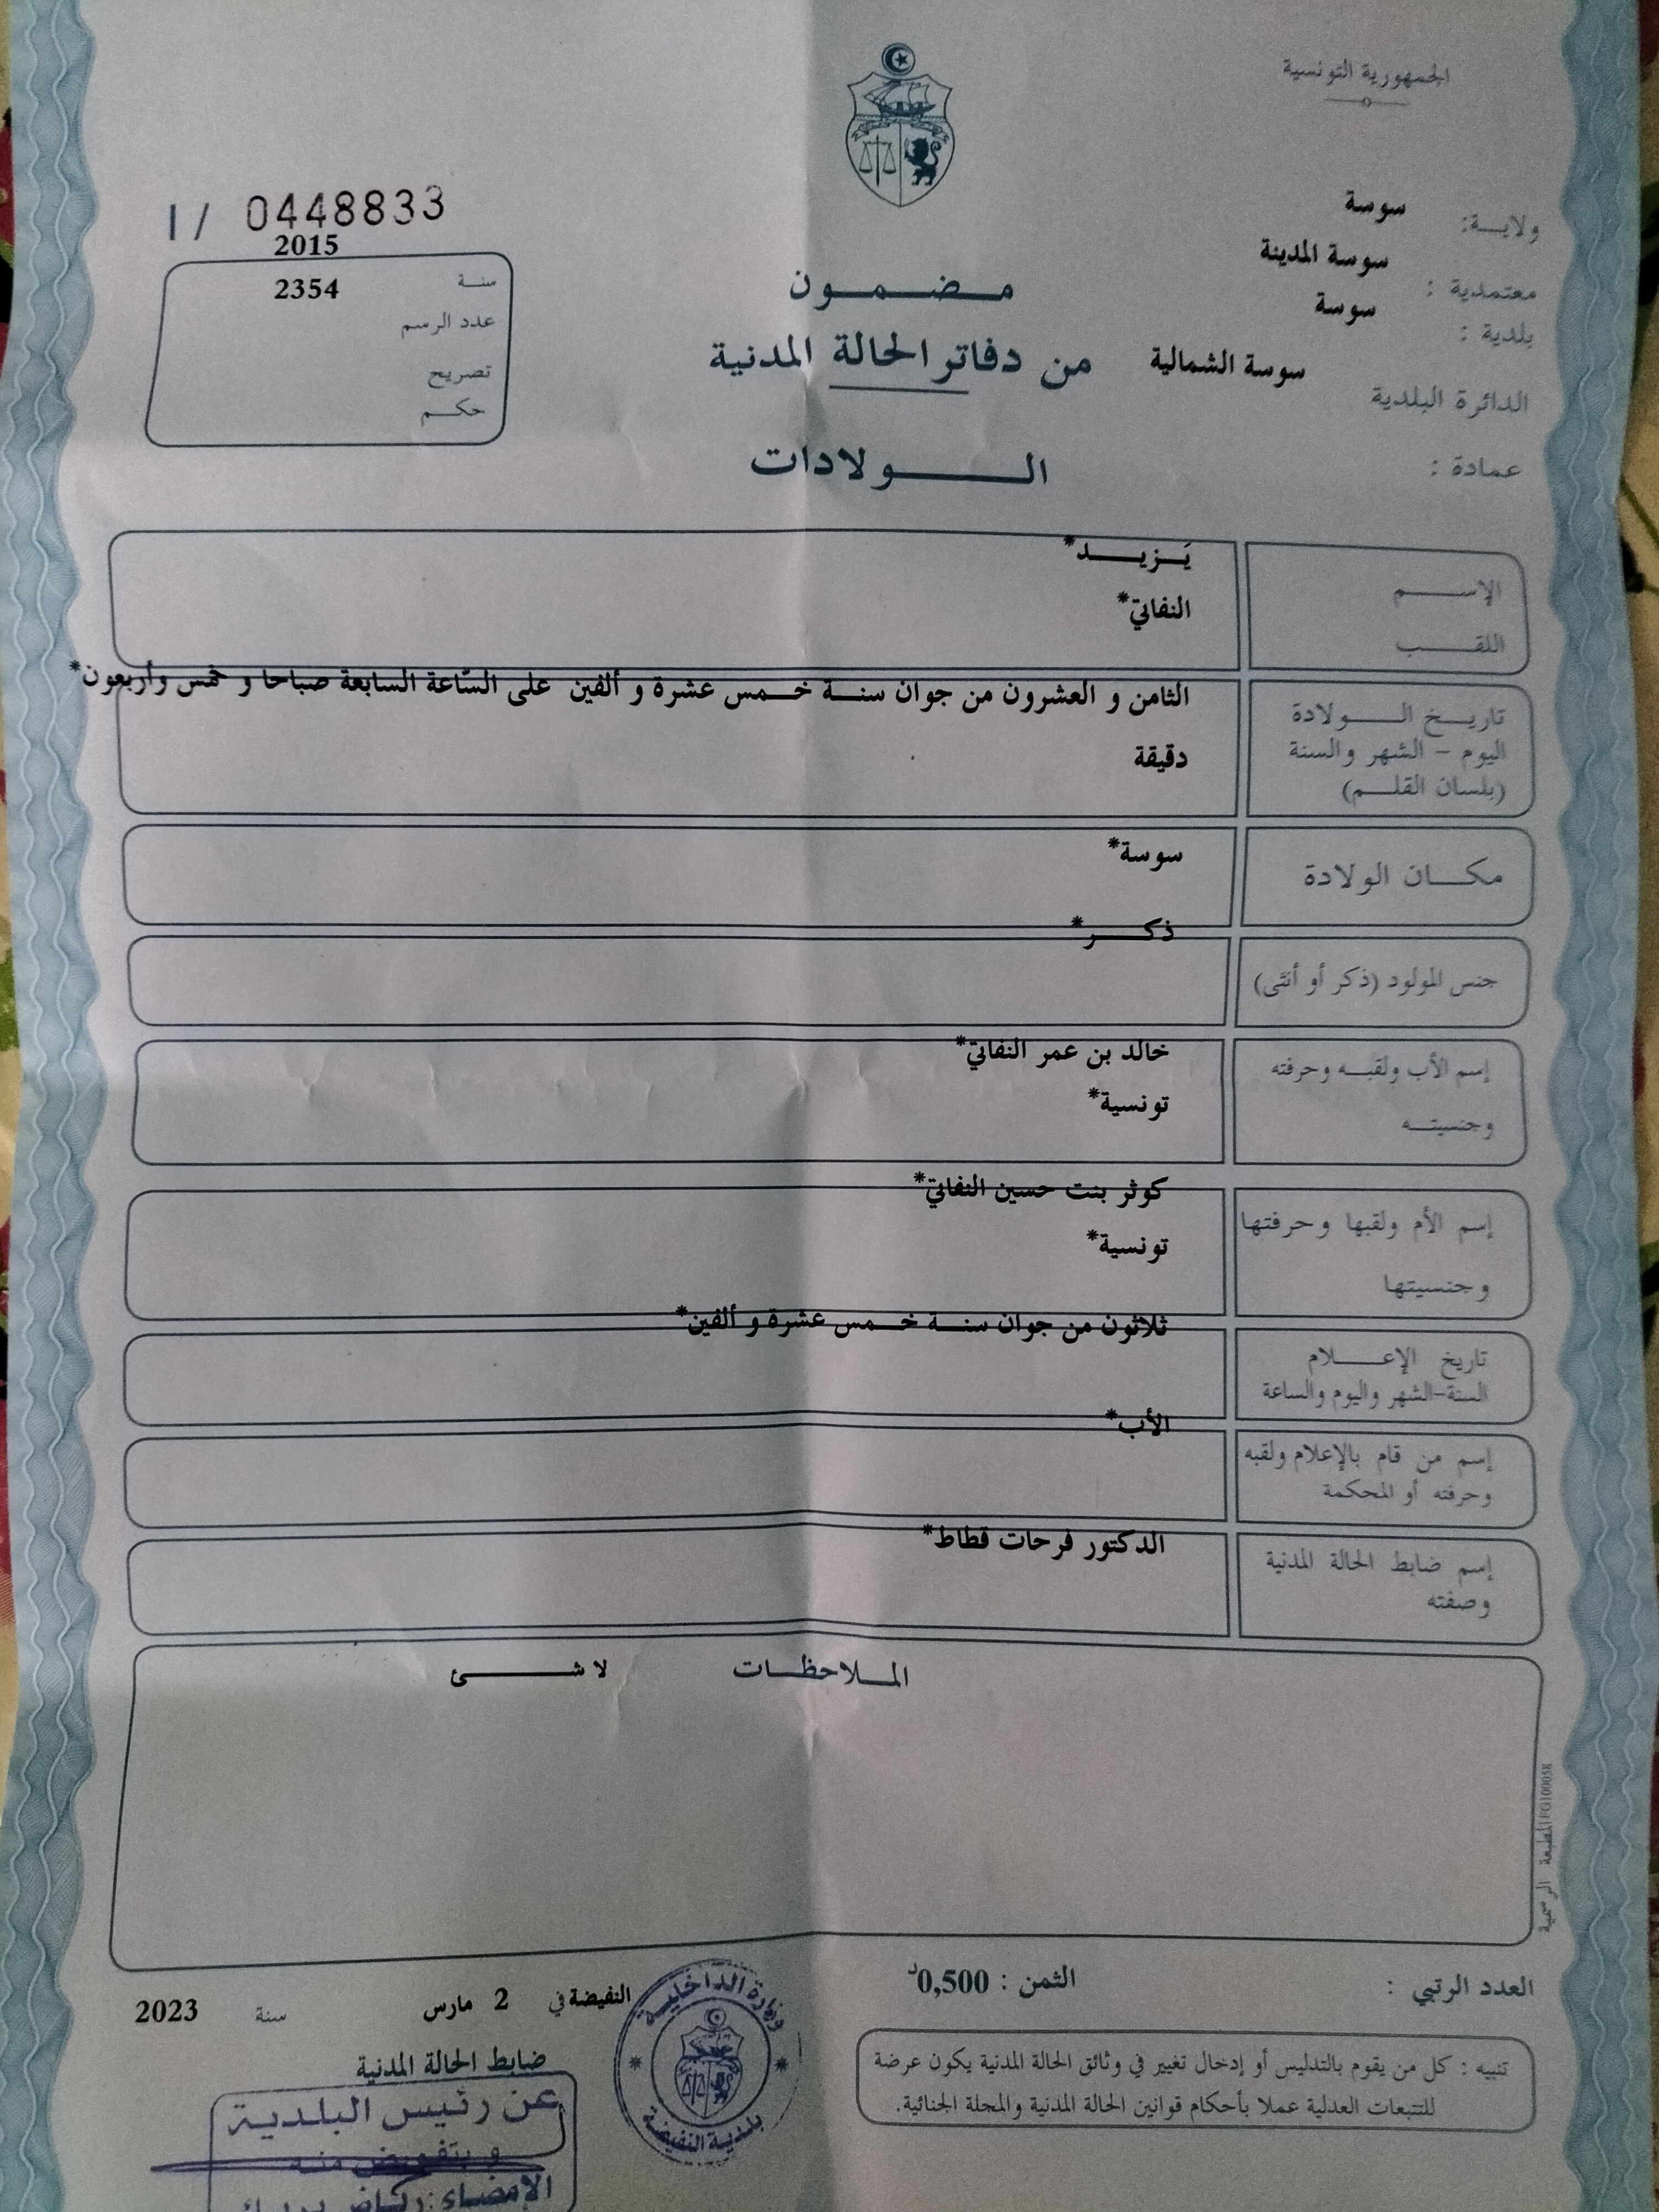 الجمهورية التونسية
ولايـــة: سوسة
معتمدية : سوسة المدينة
بلدية : سوسة
الدائرة البلدية سوسة الشمالية
عمادة :
مـضـمـون
من دفاتر الحالة المدنية
الـــولادات
1/ 0448833
2015
سنة
2354
عدد الرسم
تصريح
حكم
الإســـم
يَـزيـــد*
اللقـــب
النفاتي*
تاريـــخ الـــولادة
اليوم - الشهر والسنة
(بلسان القلـــم)
الثامن و العشرون من جوان سنـــة خـــمس عشرة و ألفين على السّاعة السابعة صباحا و خمس وأربعون*
دقيقة
مكـــان الولادة
سوسة*
جنس المولود (ذكر أو أنثى)
ذكـــر*
إسم الأب ولقبـــه وحرفته
وجنسيتـــه
خالد بن عمر النفاتي*
تونسية*
إسم الأم ولقبها وحرفتها
وجنسيتها
كوثر بنت حسين النفاتي*
تونسية*
تاريخ الإعـــلام
السنة-الشهر واليوم والساعة
ثلاثون من جوان سنـــة خـــمس عشرة و ألفين*
إسم من قام بالإعلام ولقبه
وحرفته أو المحكمة
الأب*
إسم ضابط الحالة المدنية
وصفته
الدكتور فرحات قطاط*
الملاحظـــات لا شـــئ
المطبعة الرسمية PG100058
العدد الرتبي :
الثمن : 0,500د
تنبيه : كل من يقوم بالتدليس أو إدخال تغيير في وثائق الحالة المدنية يكون عرضة
للتتبعات العدلية عملا بأحكام قوانين الحالة المدنية والمجلة الجنائية.
النفيضة في 2 مارس سنة 2023
ضابط الحالة المدنية
وزارة الداخلية
بلدية النفيضة
عن رئيس البلدية
و بتفويض منه
الامضاء : رياض